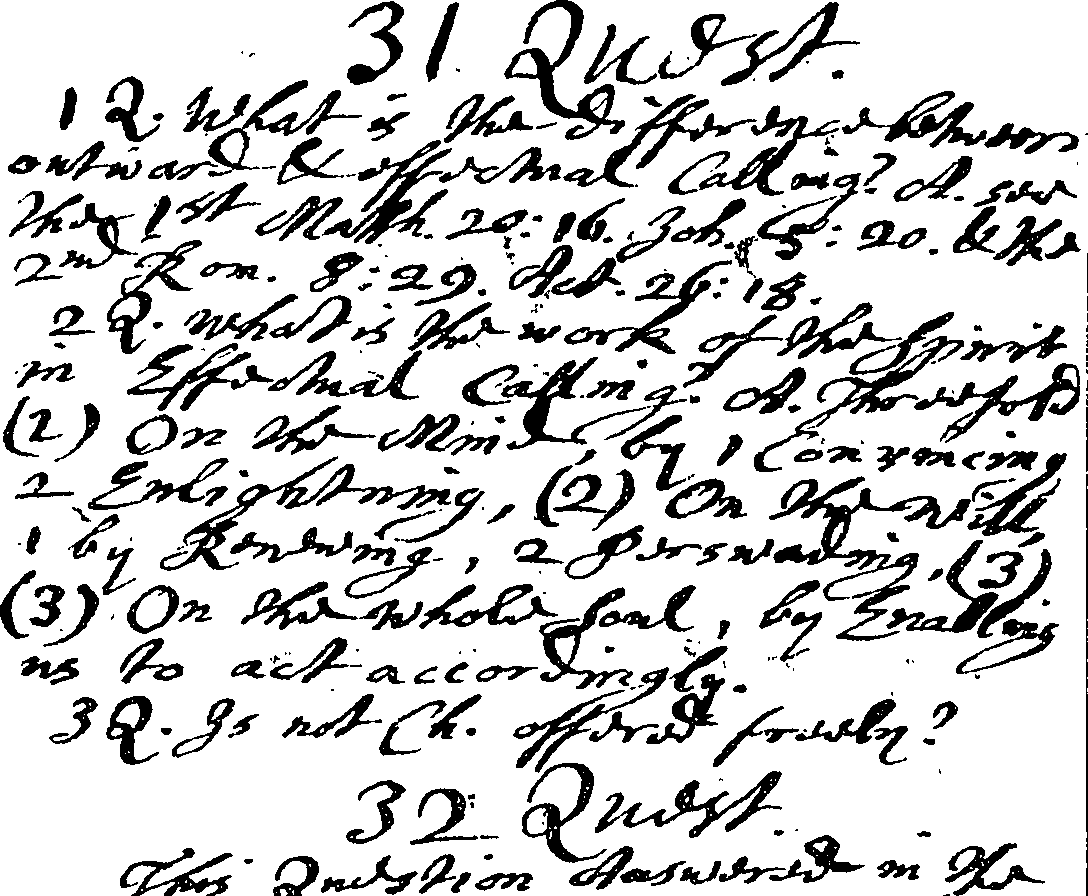 31 Quest.
1 Q. What is the difference between
outward & effectual Calling? A. see
the 1st Math. 20: 16. Joh. 5: 20. & the
2nd Rom. 8: 29. Act. 26: 18.
2 Q. What is the work of the Spirit
in Effectual Calling? A. Threefold
(2) On the Mind, by 1 Convincing
2 Enlightning, (2) On the Will,
1 by Renewing, 2 Perswading, (3)
(3) On the whole Soul, by Enabling
us to act accordingly.
3 Q. Is not Ch. offered freely?
32 Quest.
This Question Answered in the